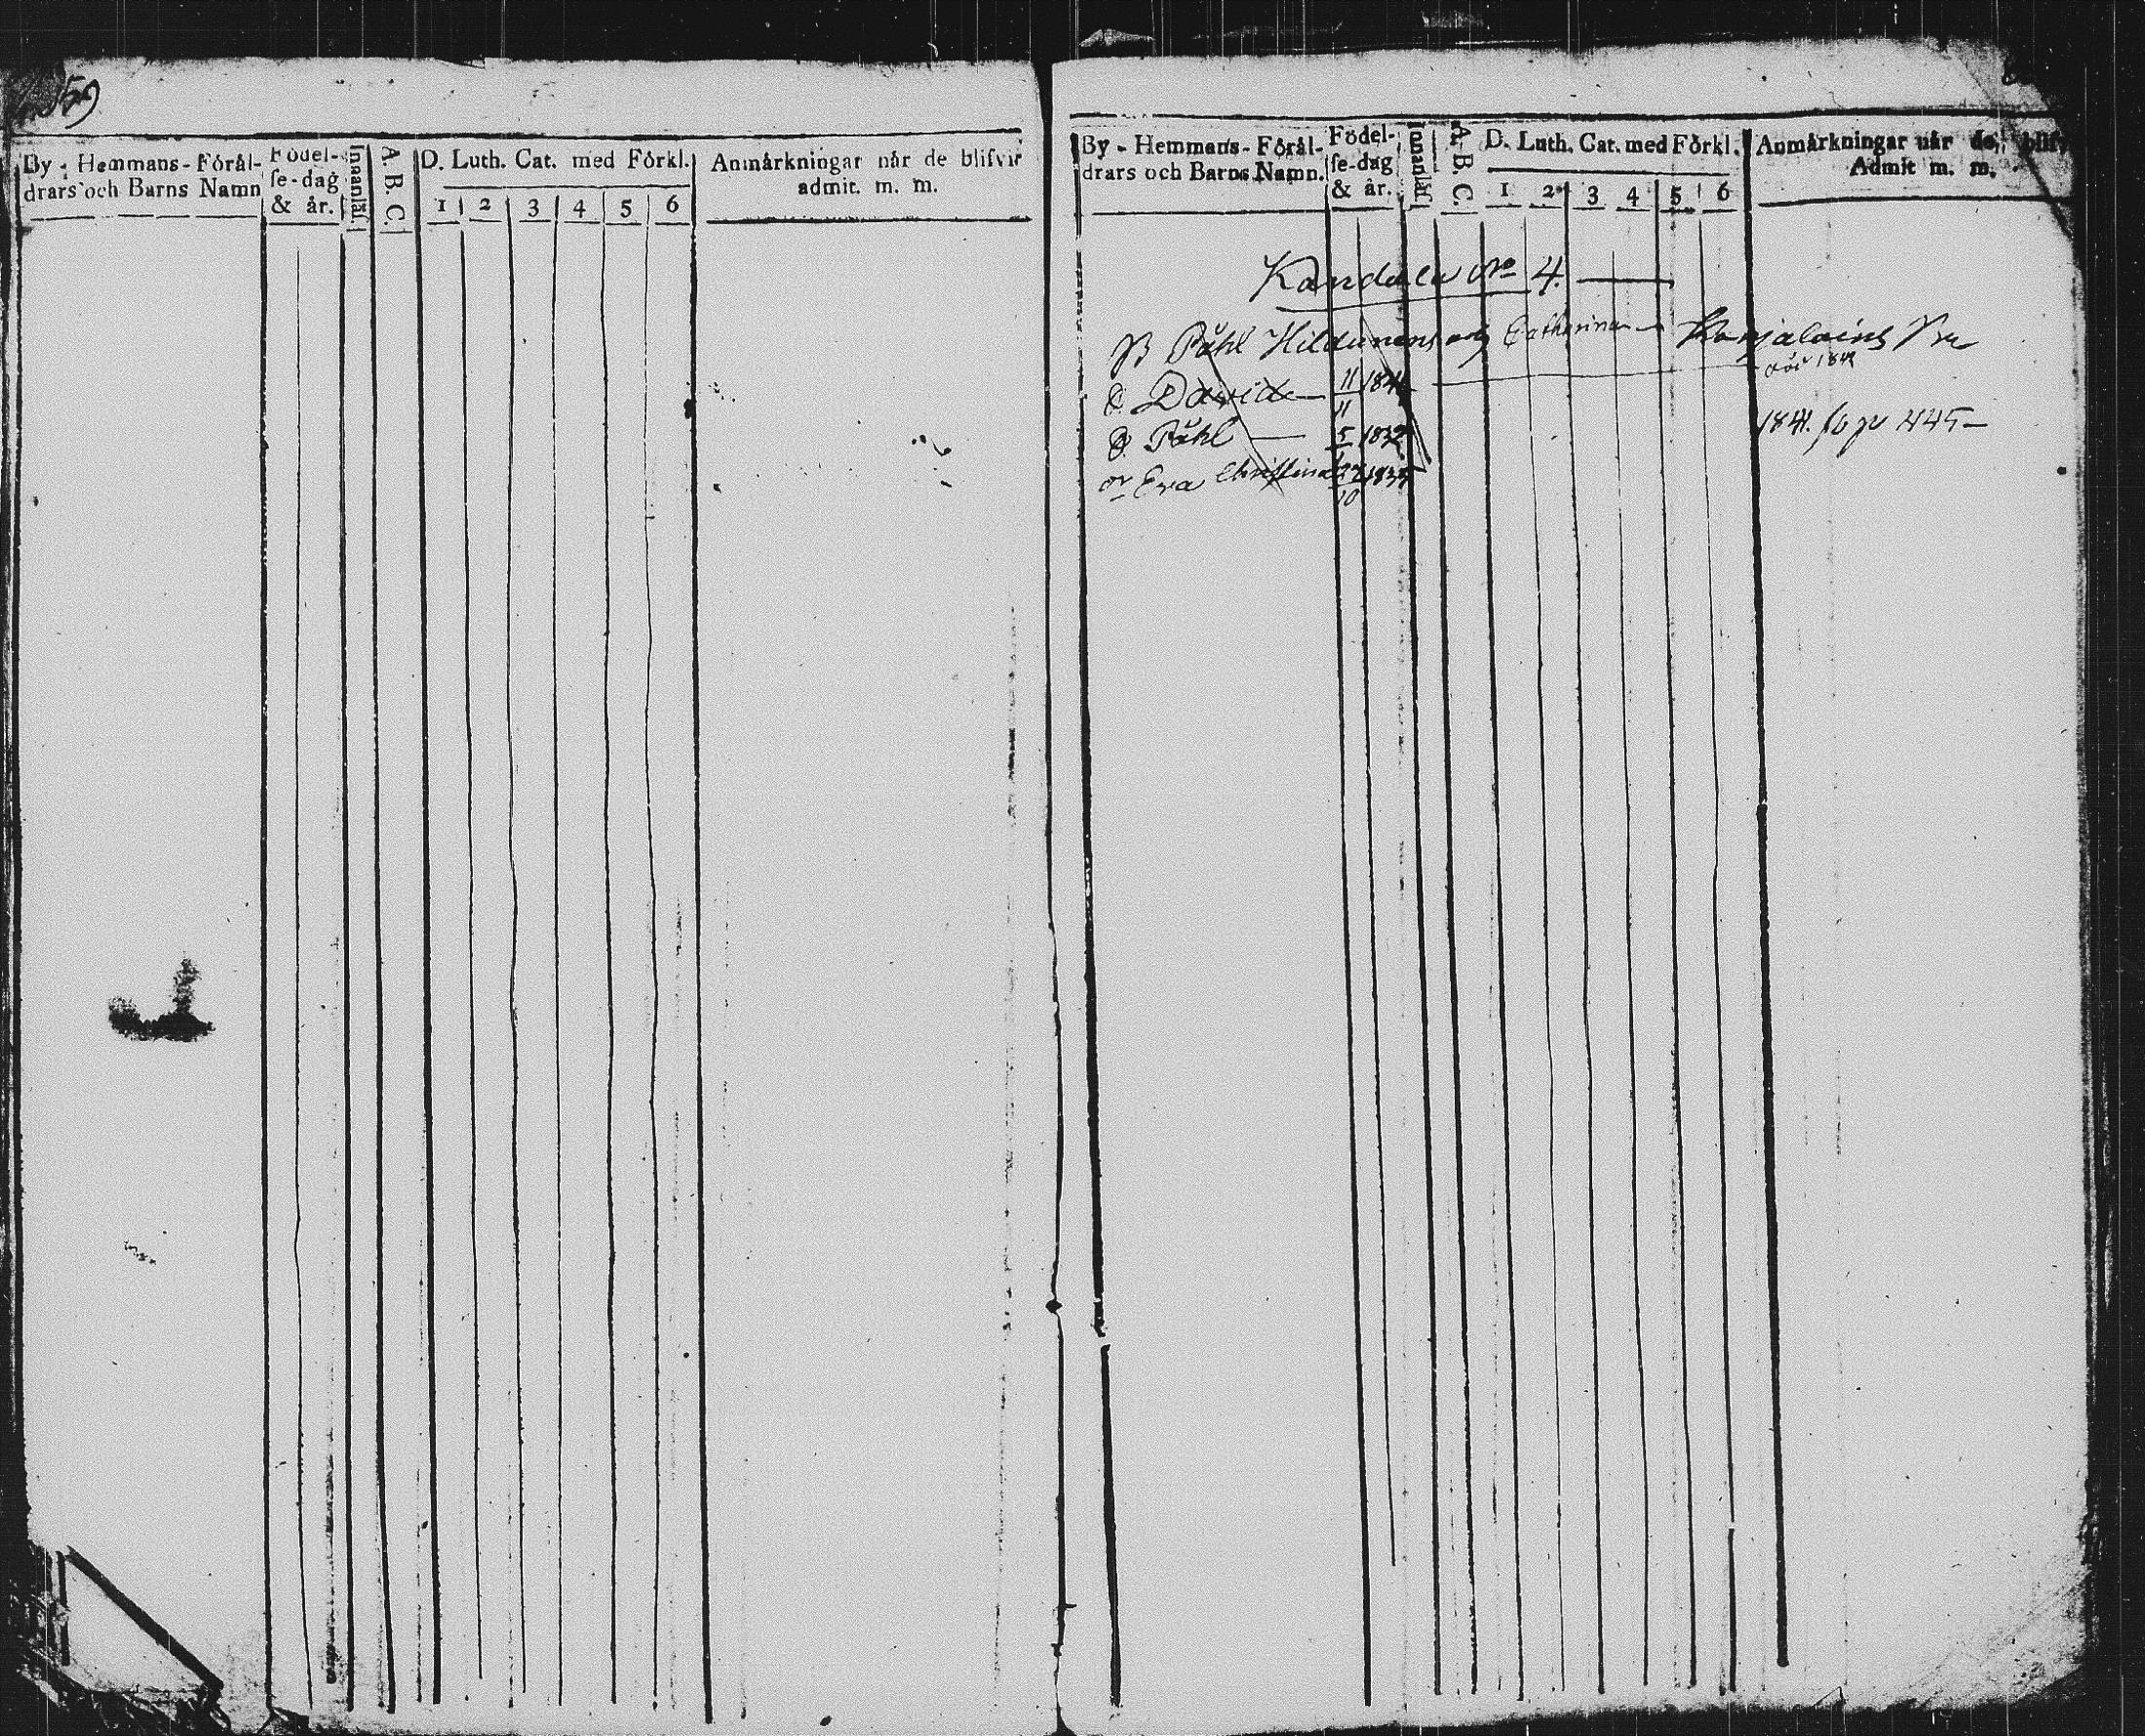 59
By - Hemmans - Förål-
drars och Barns Namn
Födel-
se-dag
& år.
Innanläs.
A. B. C.
D. Luth. Cat. med Förkl.
1 2 3 4 5 6
Anmärkningar når de blifvit
admit. m. m.
By - Hemmans - Förål-
drars och Barns Namn.
Födel-
se-dag
& år.
Innanläs.
A. B. C.
D. Luth. Cat. med Förkl.
1 2 3 4 5 6
Anmärkningar når de blifv
Admit m. m.
Kandala No 4.
B Påhl Hildunens och Catharina Karjalains Bn
d. David 11/11 184 död 1842
d. Påhl 5 1832 1841. 445
Eva Christina 22/10 183